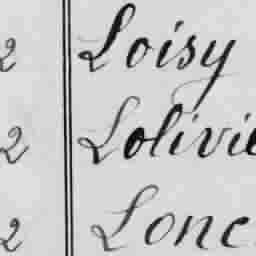 2 Loisy
2 Lolivie
2 Lonc